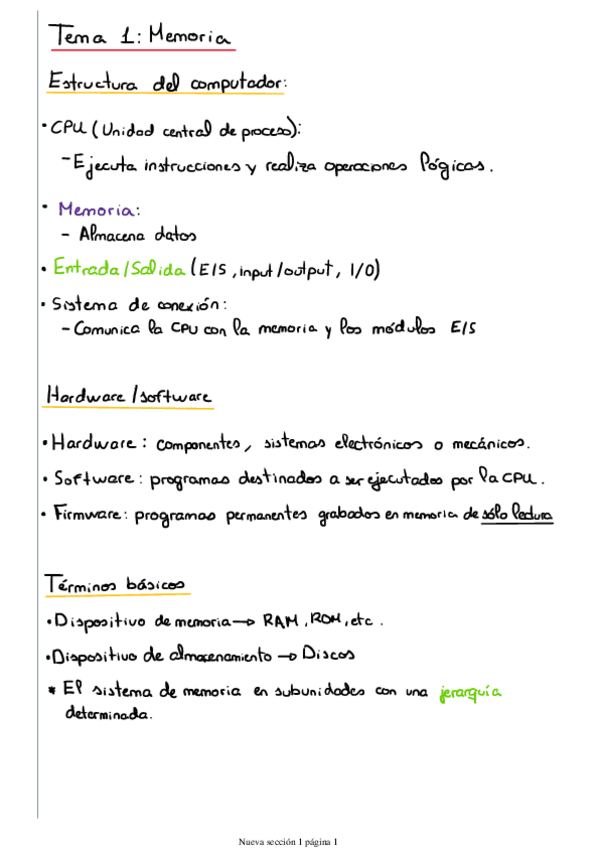 Tema 1: Memoria
Estructura del computador:
• CPU (Unidad central de proceso):
- Ejecuta instrucciones y realiza operaciones lógicas.
• Memoria:
- Almacena datos
• Entrada/Salida (E/S, input/output, I/O)
• Sistema de conexión:
- Comunica la CPU con la memoria y los módulos E/S
Hardware/software
• Hardware: componentes, sistemas electrónicos o mecánicos.
• Software: programas destinados a ser ejecutados por la CPU.
• Firmware: programas permanentes grabados en memoria de sólo lectura
Términos básicos
• Dispositivo de memoria → RAM, ROM, etc.
• Dispositivo de almacenamiento → Discos
* El sistema de memoria en subunidades con una jerarquía
determinada.
Nueva sección 1 página 1